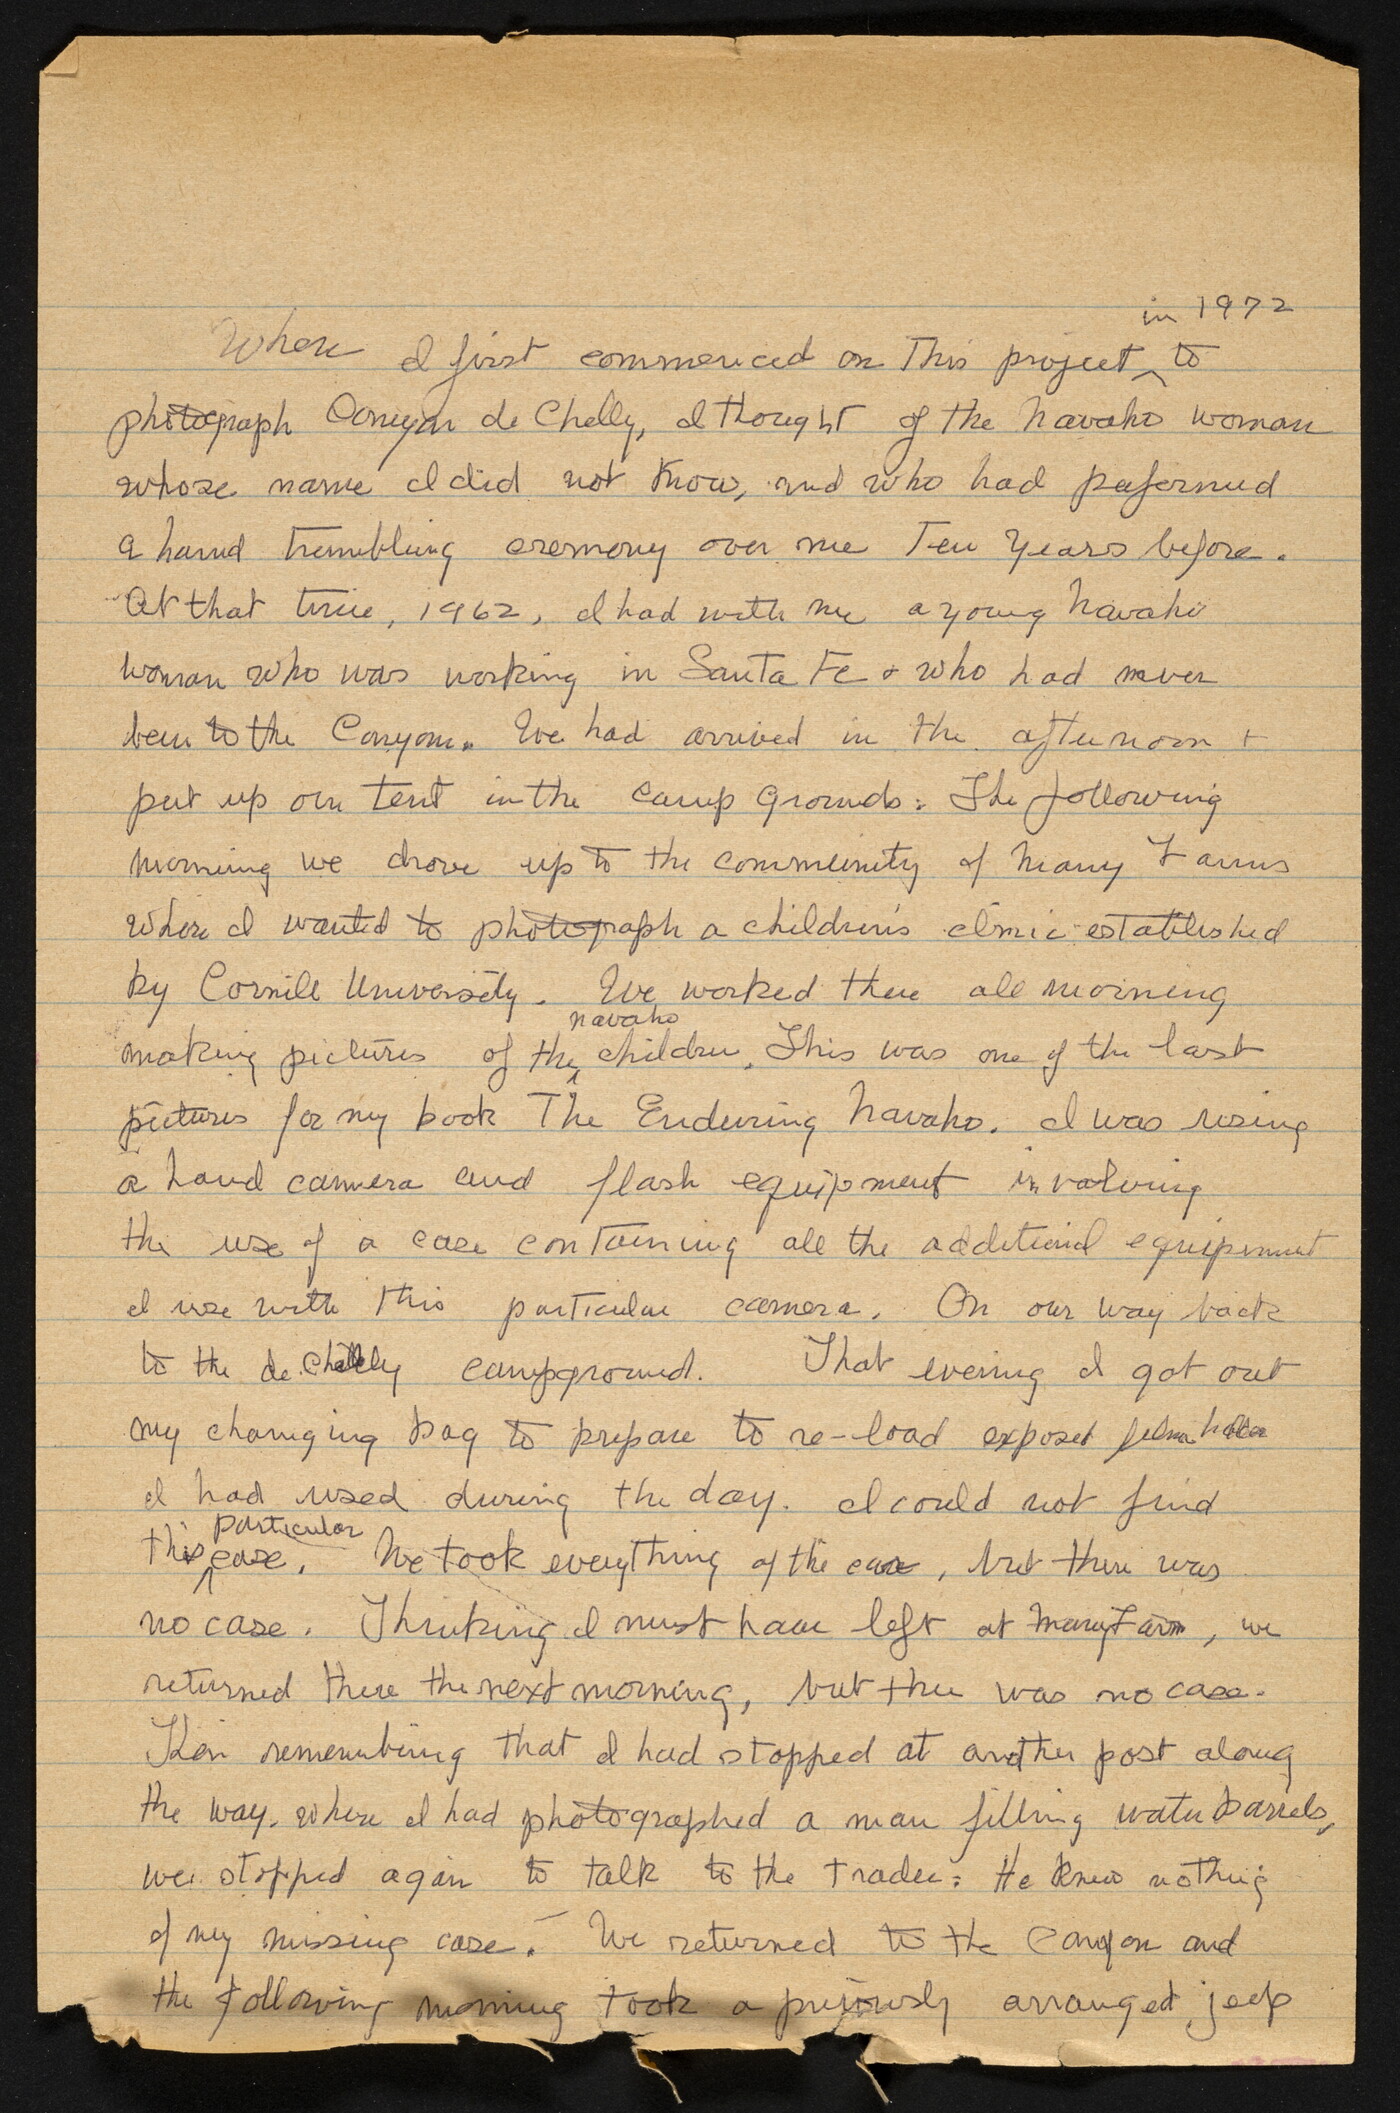 in 1972
When I first commenced on This project ‸ to
photograph Canyon de Chelly, I thought of the Navaho woman
whose name I did not know, and who had peformed
a hand trembling ceremony over me Ten Years before.
At that time, 1962, I had with me a young Navaho
woman who was working in Santa Fe + who had never
been to the Canyon. We had arrived in the afternoon +
put up our tent in the camp grounds: The following
morning we drove up to the community of Many Farms
where I wanted to photograph a children's clinic established
by Cornell University. We worked there all morning
navaho
making pictures of the ‸ children. This was one of the last
pictures for my book The Enduring Navaho. I was using
a hand camera and flash equipment involving
the use of a case containing all the additional equipment
I use with this particular camera. On our way back
to the de Chelly campground. That evening I got out
my changing bag to prepare to re-load exposed film holder
I had used during the day. I could not find
particular
this ‸ case. We took everything of the car, but there was
no case. Thinking I must have left at Many Farm, we
returned there the next morning, but there was no case.
Then remembering that I had stopped at another post along
the way. where I had photographed a man filling water barrels,
we stopped again to talk to the trader: He knew nothing
of my missing case. We returned to the Canyon and
the following morning took a arranged jeep